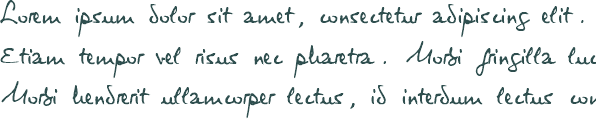 Lorem ipsum dolor sit amet, consectetur adipiscing elit.
Etiam tempor vel risus nec pharetra. Morbi fringilla luc
Morbi hendrerit ullamcorper lectus, id interdum lectus con